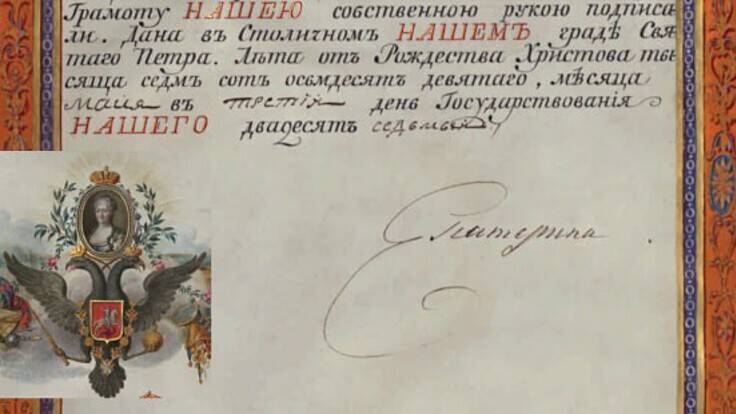 Грамоту НАШЕЮ собственною рукою подписа
ли. Дана въ Столичномъ НАШЕМЪ градѣ Свя
таго Петра. Лѣта отъ Рождества Христова ты
сяща седмъ сотъ осьмдесятъ девятаго, мѣсяца
маиа въ третіи день Государствованія
НАШЕГО двадесятъ седьмый
Екатерина